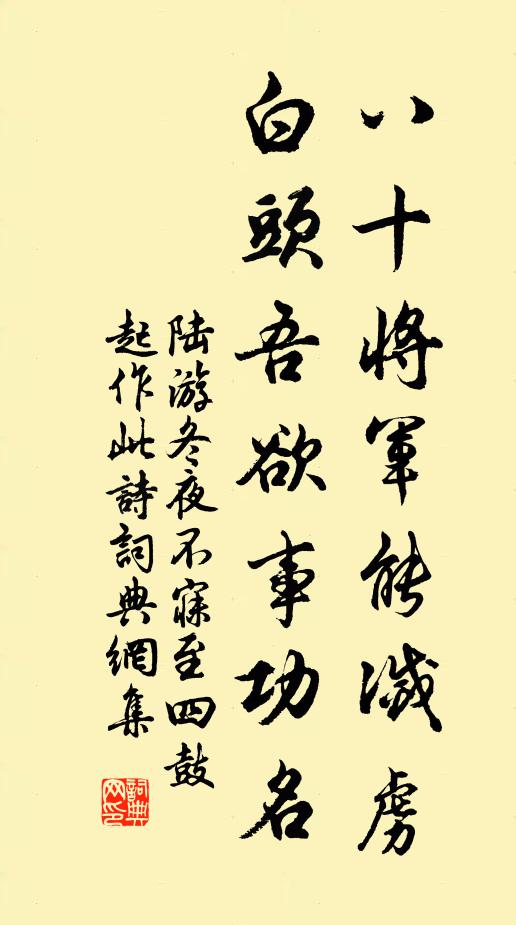 八十將軍能滅虜
白頭吾欲事功名
陆游冬夜不寐至四鼓
起作此詩詞典網集
詞典
网印